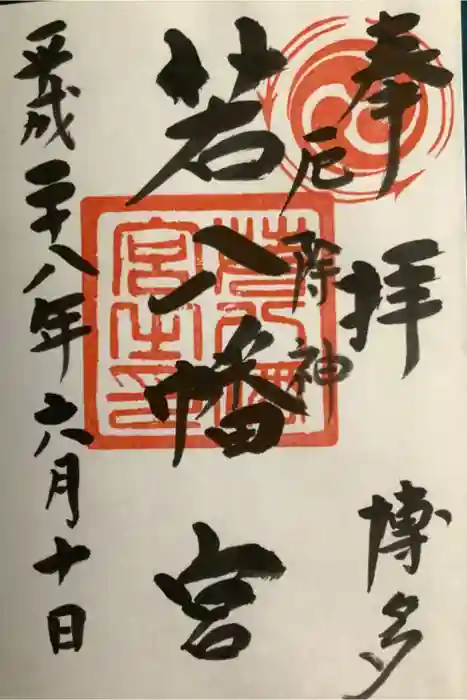 奉拝
博多
厄除神
若八幡宮
平成二十八年六月十日